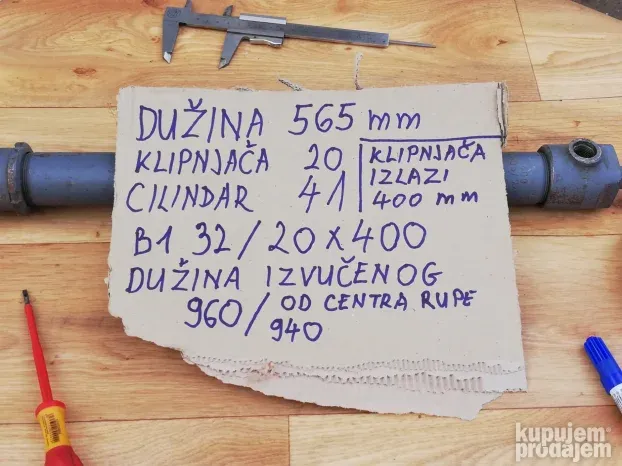 DUŽINA 565 mm
KLIPNJAČA 20
CILINDAR 41
KLIPNJAČA
IZLAZI
400 mm
B1 32/20 x 400
DUŽINA IZVUČENOG
960/OD CENTRA RUPE
940
kupujem
prodajem